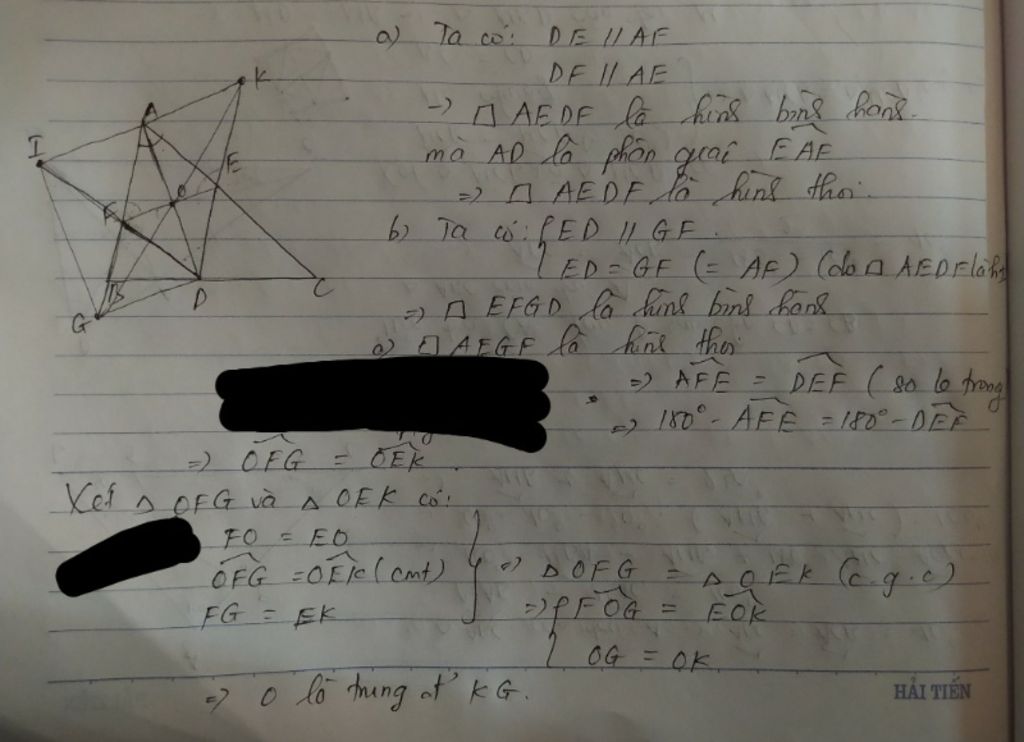 a) Ta có: DE // AF
DF // AE
→ □ AEDF là hình bình hành.
mà AD là phân giác EAF
=> □ AEDF là hình thoi.
b) Ta có: { ED // GF.
ED = GF (= AF) (do □ AEDF là h
=> □ EFGD là hình bình hành
a) □ AEGF là hình thoi
=> AFE = DEF ( so le trong
=> 180° - AFE = 180° - DEF
=> OFG = OEK.
Xét △ OFG và △ OEK có:
FO = EO
OFG = OEK (cmt)
FG = EK
} => △ OFG = △ OEK (c.g.c)
=> { FOG = EOK
OG = OK
=> O là trung đ' KG.
I
A
K
E
F
O
G
B
D
C
HẢI TIẾN